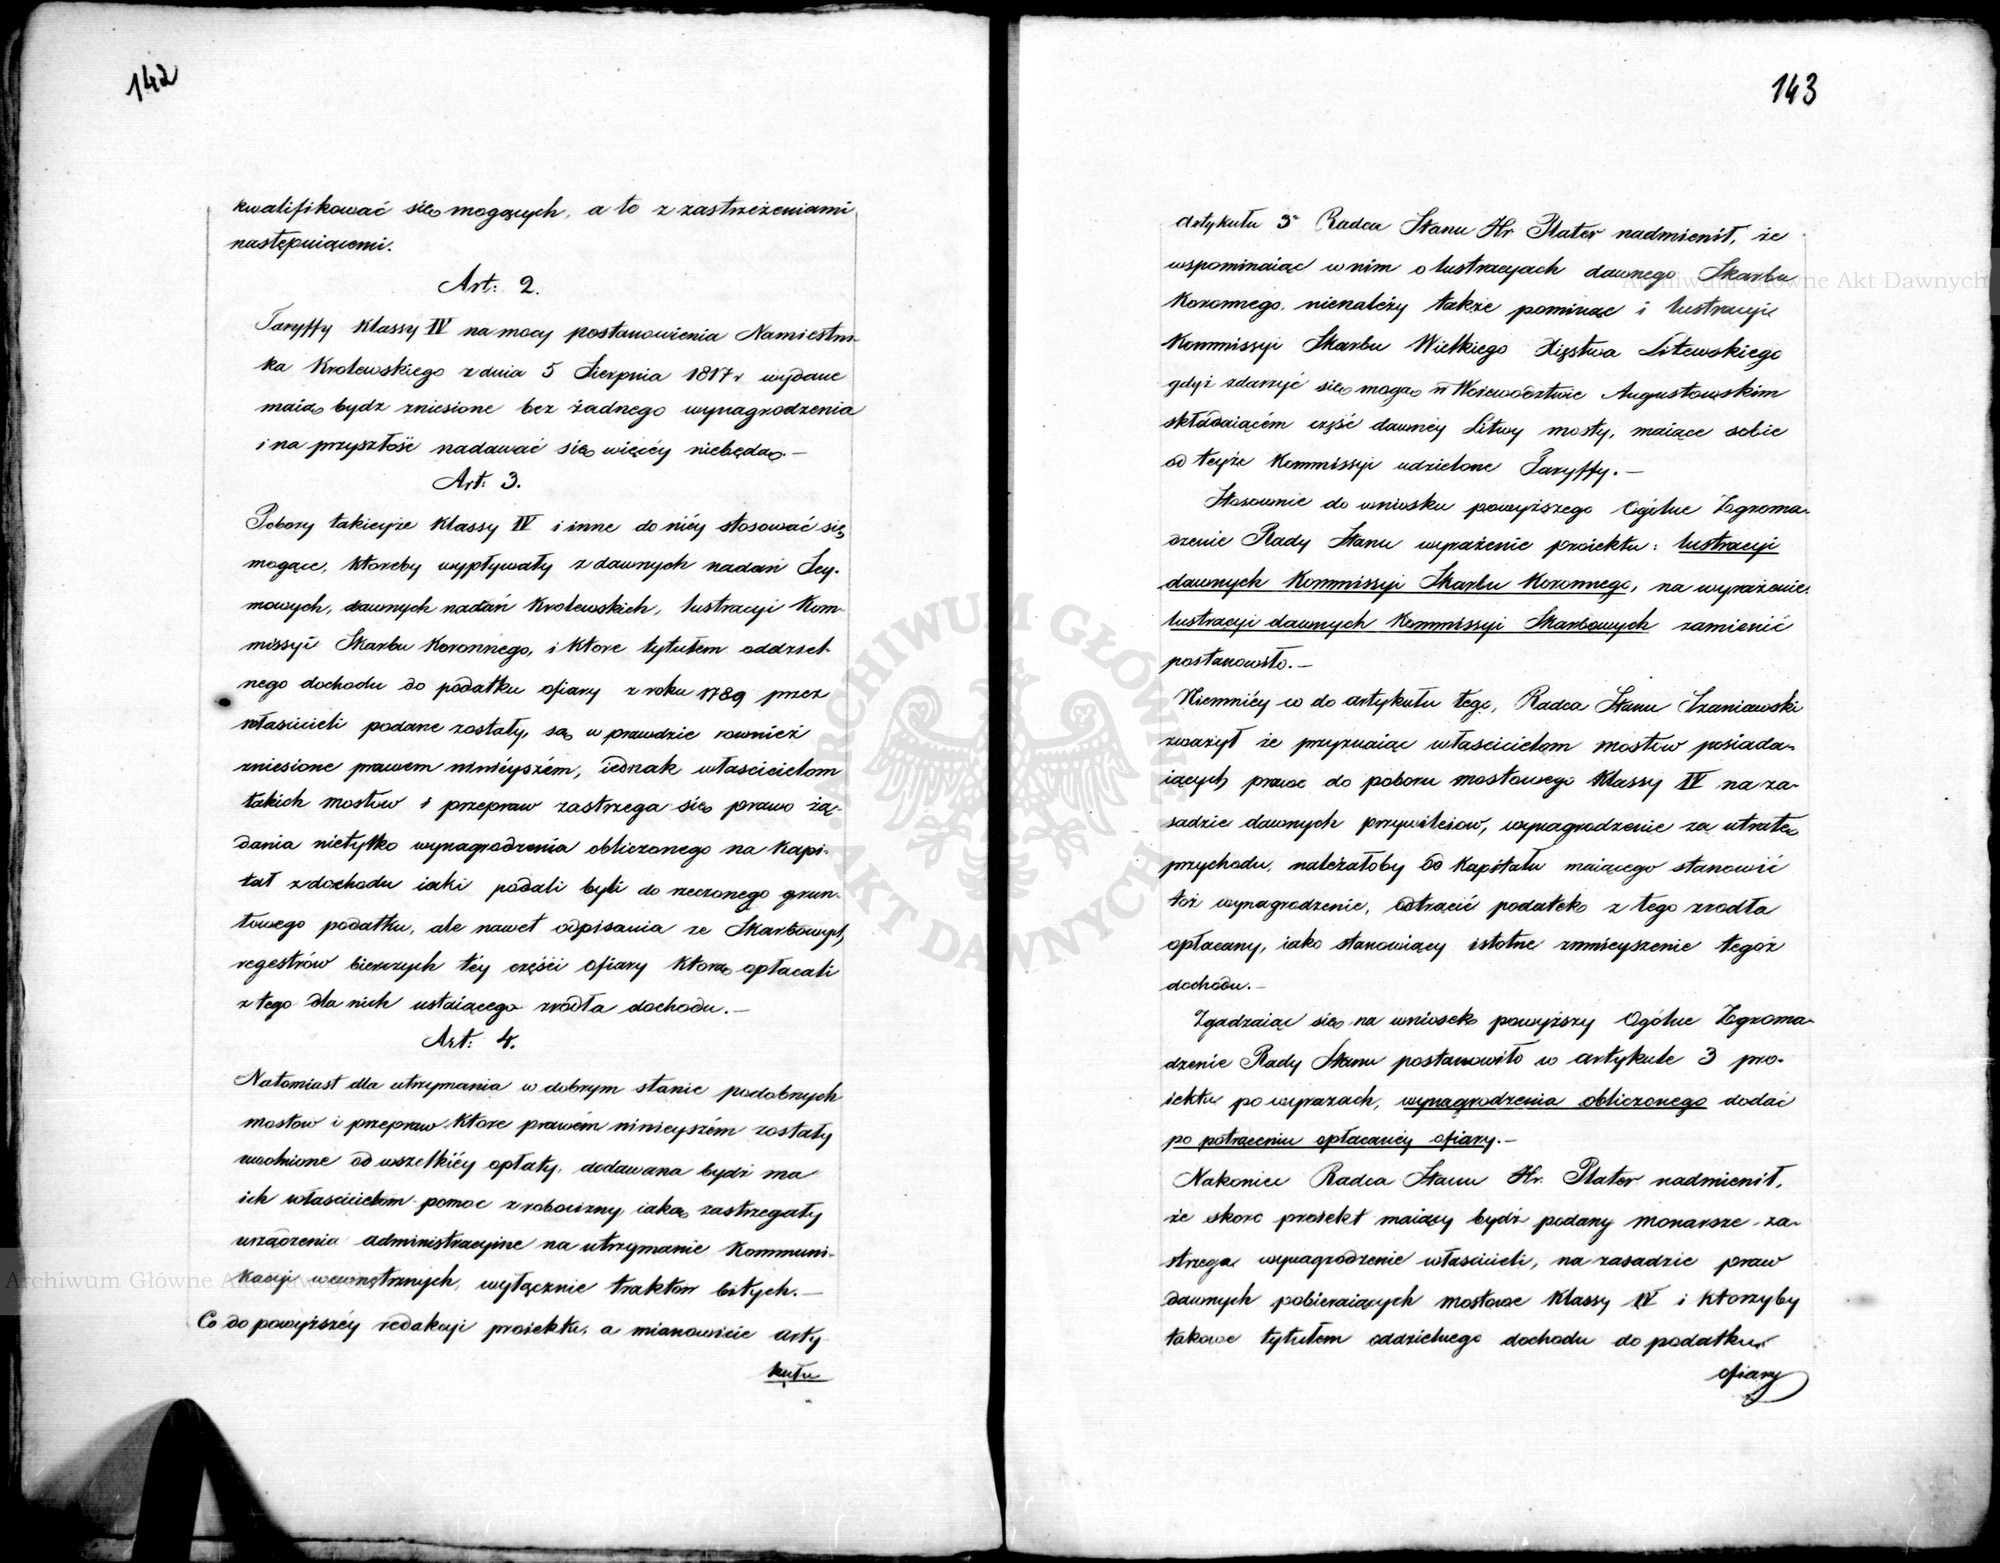 142
kwalifikować się mogących, a to z zastrzeżeniami
następuiącemi.
Art: 2.
Taryffy Klassy IV na mocy postanowienia Namiestni-
ka Krolewskiego z dnia 5 Sierpnia 1817 r wydane
maią bydz zniesione bez żadnego wynagrodzenia
i na przyszłość nadawać się więcéy niebędą.—
Art: 3.
Pobory takieyże Klassy IV i inne do niéy stosować się
mogące, któreby wypływały z dawnych nadań Sey-
mowych, dawnych nadań Krolewskich, lustracyi Kom-
missyi Skarbu Koronnego, i które tytułem oddziel-
nego dochodu do podatku ofiary z roku 1789 przez
właścicieli podane zostały, są w prawdzie również
zniesione prawem ninieyszém, iednak właścicielom
takich mostow i przepraw zastrzega się prawo żą-
dania nietylko wynagrodzenia obliczonego na Kapi-
tał z dochodu iaki podali byli do rzeczonego grun-
towego podatku, ale nawet odpisania ze Skarbowych
regestrów bierczych téy części ofiary którą opłacali
z tego dla nich ustaiącego zrodła dochodu.—
Art: 4.
Natomiast dla utrzymania w dobrym stanie podobnych
mostow i przepraw które prawém ninieyszém zostały
uwolnione od wszelkiéy opłaty, dodawana bydź ma
ich właścicielom pomoc z robocizny, iaką zastrzegały
urządzenia administracyine na utrzymanie Kommuni-
kacyi wewnętrznych, wyłącznie traktów bitych.—
Co do powyższéy redakcyi proiektu, a mianowicie arty
kułu
143
Artykułu 3º Radca Stanu Hr Plater nadmienił, że
wspominaiąc w nim o lustracyach dawnego Skarbu
Koronnego, nienależy także pominąć i lustracyi
Kommissyi Skarbu Wielkiego Xięstwa Litewskiego
gdyż zdarzyć się mogą w Woiewództwie Augustowskim
składaiącém część dawnéy Litwy mosty, maiące sobie
od teyże Kommissyi udzielone Taryffy.—
Stosownie do wniosku powyższego Ogólne Zgroma-
dzenie Rady Stanu wyrażenie proiektu: lustracyi
dawnych Kommissyi Skarbu Koronnego, na wyrażenie
lustracyi dawnych Kommissyi Skarbowych zamienić
postanowiło.—
Niemniéy co do artykułu tego, Radca Stanu Szaniawski
zważył że przyznaiąc właścicielom mostów posiada-
iących prawo do poboru mostowego Klassy IV na za-
sadzie dawnych przywileiow, wynagrodzenie za utratę
przychodu, należałoby od Kapitału maiącego stanowić
toż wynagrodzenie, odtrącić podatek z tego zrodła
opłacany, iako stanowiący istotne zmnieyszenie tegoż
dochodu.—
Zgadzaiąc się na wniosek powyższy Ogólne Zgroma-
dzenie Rady Stanu postanowiło w artykule 3 pro-
iektu po wyrazach, wynagrodzenia obliczonego dodać
po potrąceniu opłacanéy ofiary.—
Nakoniec Radca Stanu Hr. Plater nadmienił,
że skoro proiekt maiący bydź podany Monarsze za-
strzega wynagrodzenie właścicieli, na zasadzie praw
dawnych pobieraiących mostowe Klassy IV i którzyby
takowe tytułem oddzielnego dochodu do podatku
ofiary
ARCHIWUM GŁÓWNE AKT DAWNYCH
Archiwum Główne Akt Dawnych
Archiwum Główne Akt Dawnych